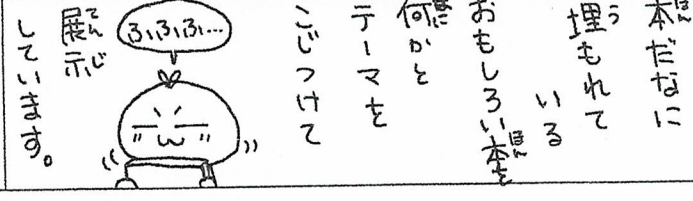 本だなに
埋もれて
いる
おもしろい本を
何かと
テーマを
こじつけて
ふふふふ…
展示
しています。